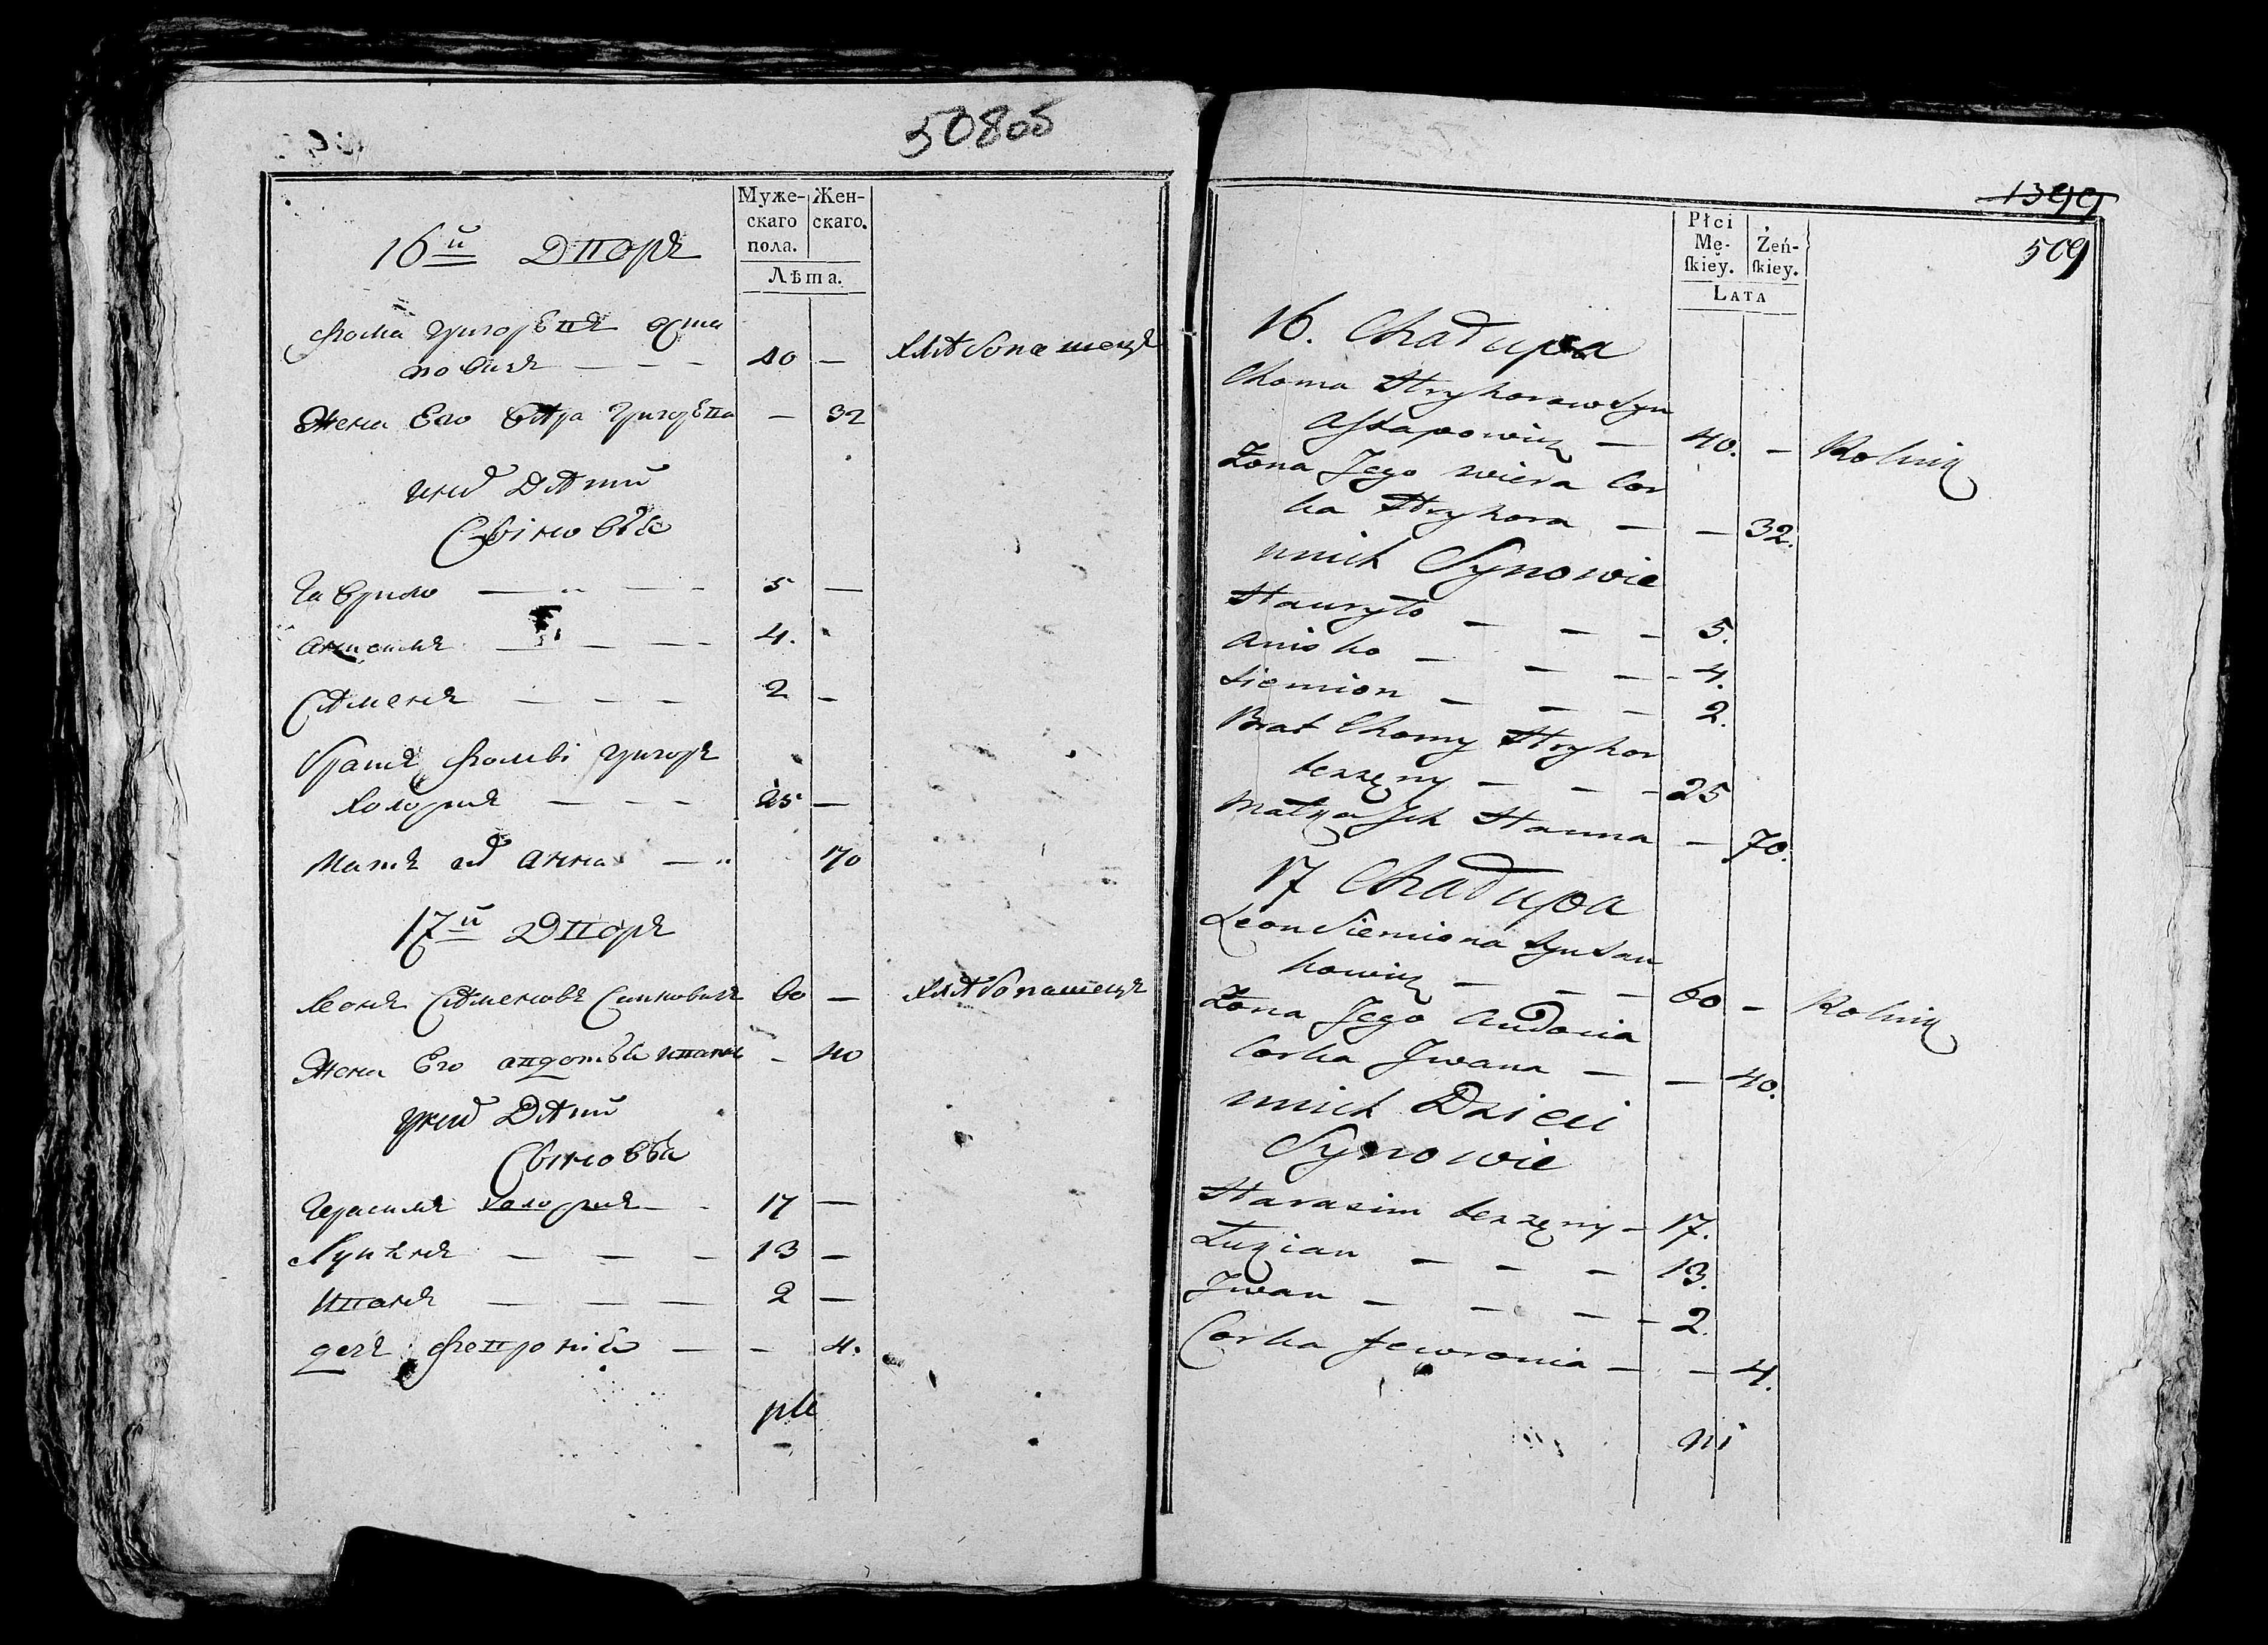 508об
Муже-
скаго
пола.
Жен-
скаго.
Лѣта.
16й Дворъ
Фома Григорьевъ Оста
повичъ — — — 40 — хлѣбопашецъ
Жена Его Вѣра Григорьева — 32
уних Дѣти
Сыновья
Гаврило — — — 5 —
Анисимъ — — — 4.
Сѣменъ — — — 2 —
братъ Фомы Григоръ
холоръ — — — 25 —
Мать их Анна — 70
17й Дворъ
Леонъ Сѣменовъ Санковичъ 60 — хлѣбопашецъ
Жена Его Авдотья Ивана — 40
уних Дѣти
Сыновья
Герасимъ — 17 —
Лукьянъ — — — 13 —
Иванъ — — — 2 —
дочь Февронія — — 4.
1399
509
Płci
Mę-
ſkiey.
Żeń-
ſkiey.
LATA
16. Chałupa
Choma Hryhorow Syn
Astapowicz — 40. — Rolnik
Żona Jego Wiera Cor
ka Hryhora — — 32.
unich Synowie
Hauryło — — — 5.
Anisko — — — 4.
Siemion — — — 2.
Brat Chomy Hryhor
bezżęny — — — 25
Matka Jch Hanna — 70.
17 Chałupa
Leon Siemiona Syn San
kowicz — — — 60 — Rolnik
Żona Jego Audocia
Corka Jwana — — 40.
unich Dzieci
Synowie
Harasim bezżęny — 17.
Łukian — — — 13.
Jwan — — — 2.
Corka Fewronia — — 4.